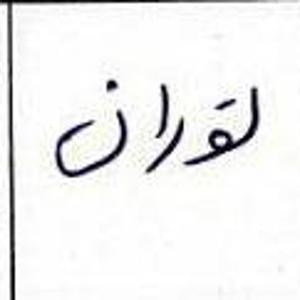 لوران